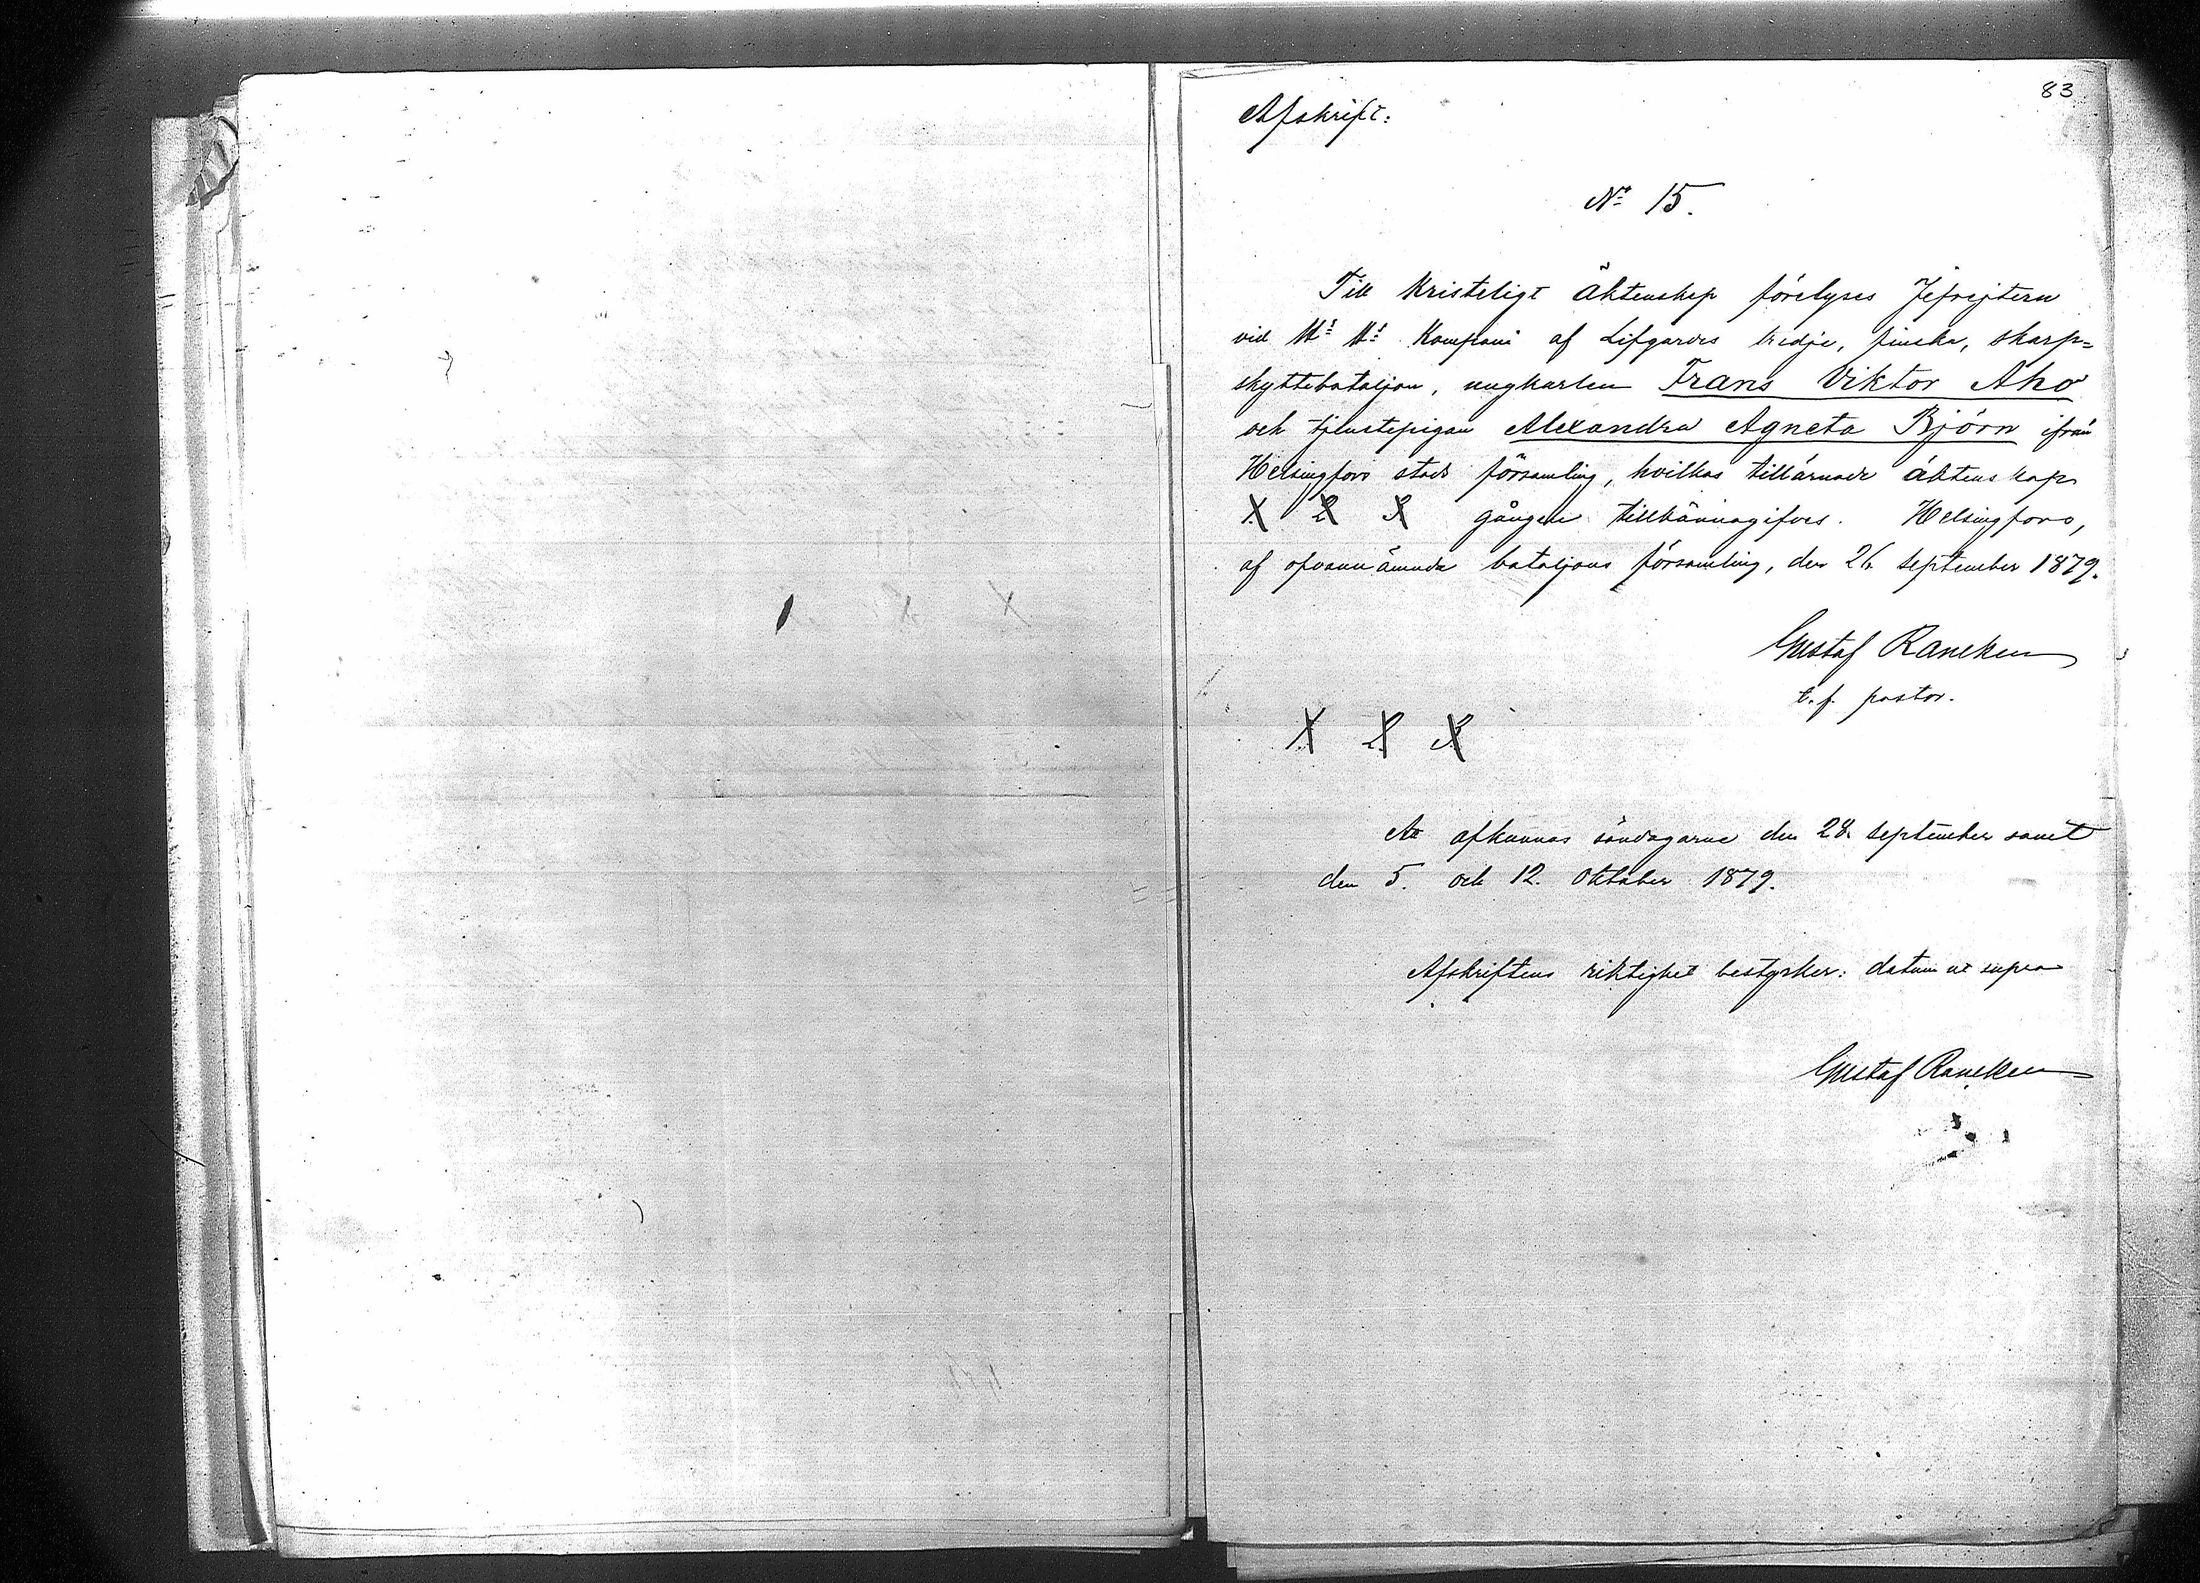 83
Afskrift:
N:o 15.
Till kristeligt äktenskap förelyses Jefrejtern
vid Kompani af Lifgardes tredje, finska, skarp=
skyttebataljon, ungkarlen Frans Viktor Aho
och tjenstepigan Alexandra Agneta Björn ifrån
Helsingfors stads församling, hvilkas tillärnade äktenskap
1 2 3 gången tillkännagifves. Helsingfors,
af ofvannämnda bataljons församling, den 26 September 1879.
Gustaf Rancken
t. f. pastor.
1 2 3
Att afkunnas söndagarne den 28. September samt
den 5. och 12. Oktober 1879.
Afskriftens riktighet bestyrker: datum ut supra
Gustaf Rancken